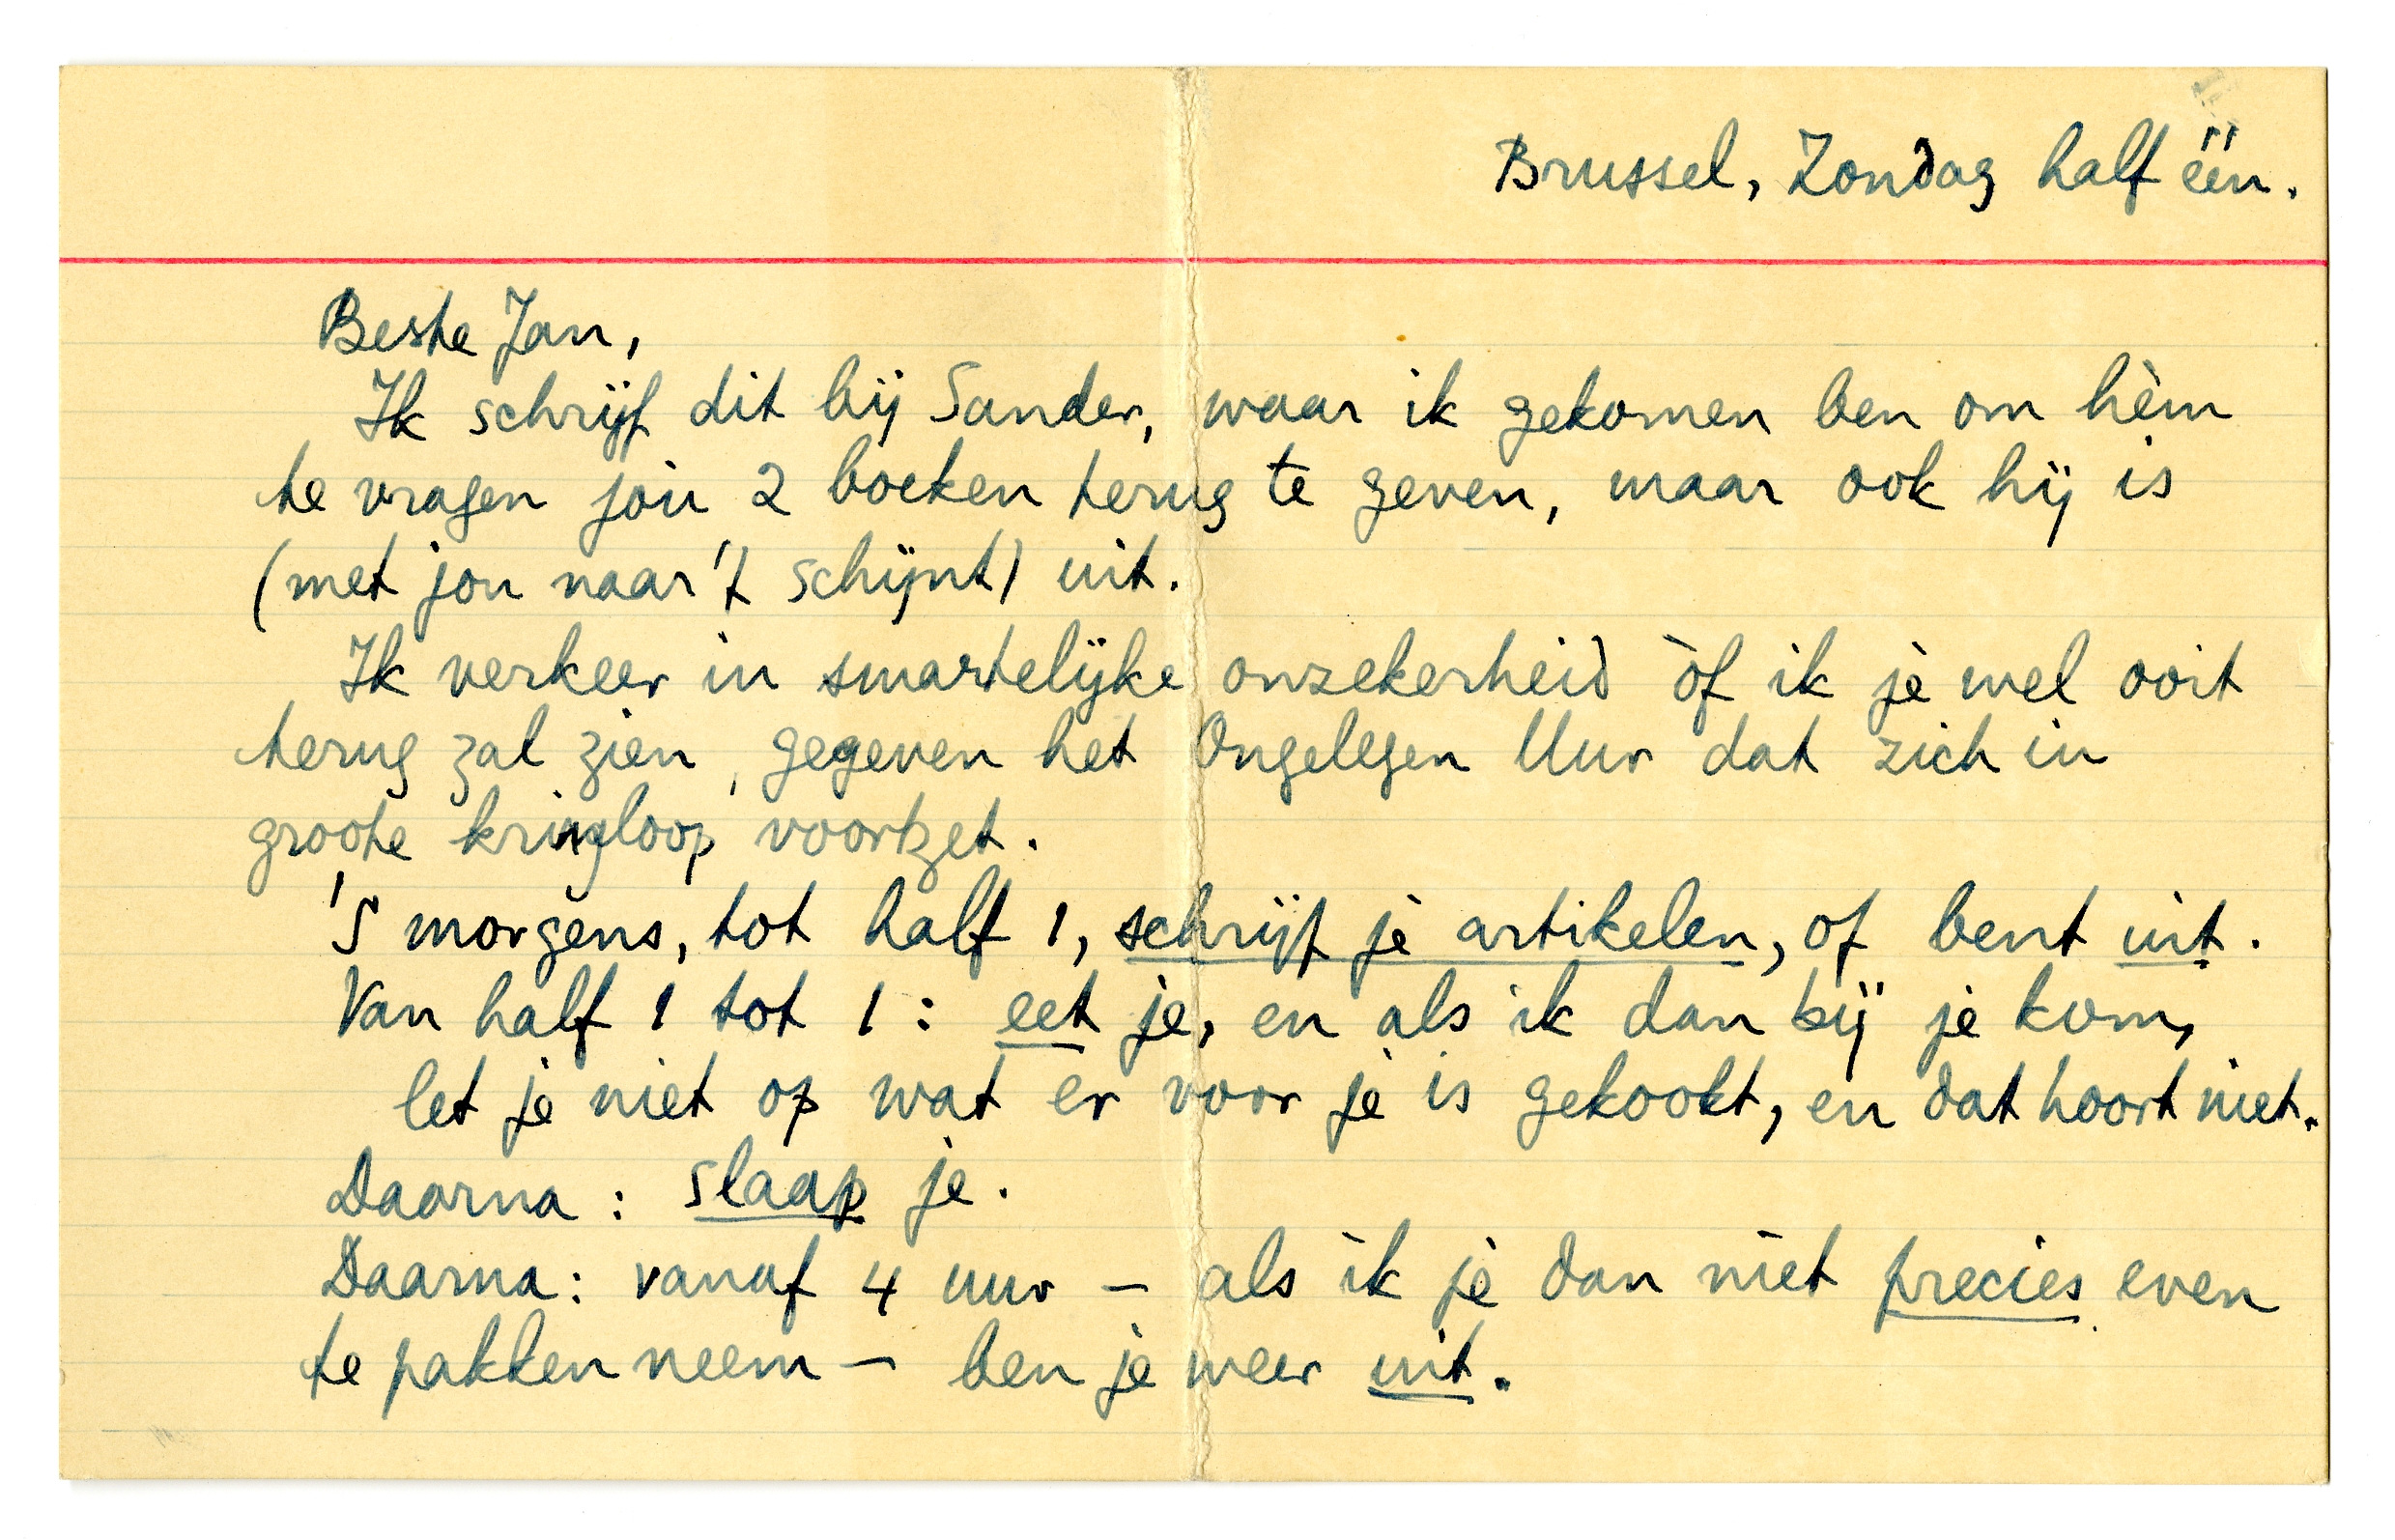 Brussel, Zondag half één.
Beste Jan,
Ik schrijf dit bij Sander, waar ik gekomen ben om hèm
te vragen jou 2 boeken terug te geven, maar ook hij is
(met jou naar 't schijnt) uit.
Ik verkeer in smartelijke onzekerheid òf ik je wel ooit
terug zal zien, gegeven het Ongelegen Uur dat zich in
groote kringloop voortzet.
'S morgens, tot half 1, schrijf je artikelen, of bent uit.
Van half 1 tot 1 : eet je, en als ik dan bij je kom,
let je niet op wat er voor je is gekookt, en dat hoort niet.
Daarna : slaap je.
Daarna : vanaf 4 uur – als ik je dan niet precies even
te pakken neem – ben je weer uit.